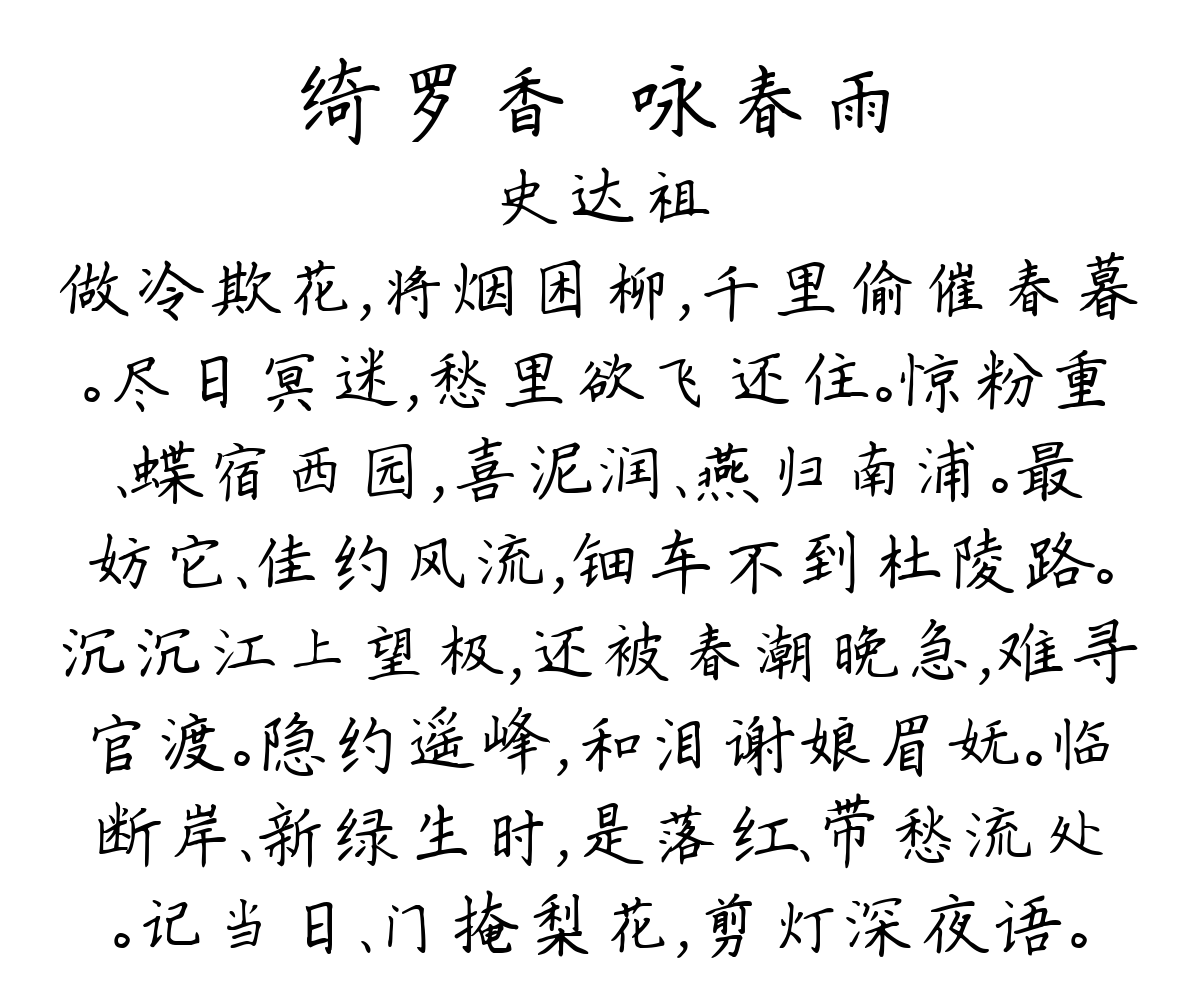 绮罗香 咏春雨
史达祖
做冷欺花,将烟困柳,千里偷催春暮
。尽日冥迷,愁里欲飞还住。惊粉重
、蝶宿西园,喜泥润、燕归南浦。最
妨它、佳约风流,钿车不到杜陵路。
沉沉江上望极,还被春潮晚急,难寻
官渡。隐约遥峰,和泪谢娘眉妩。临
断岸、新绿生时,是落红、带愁流处
。记当日、门掩梨花,剪灯深夜语。